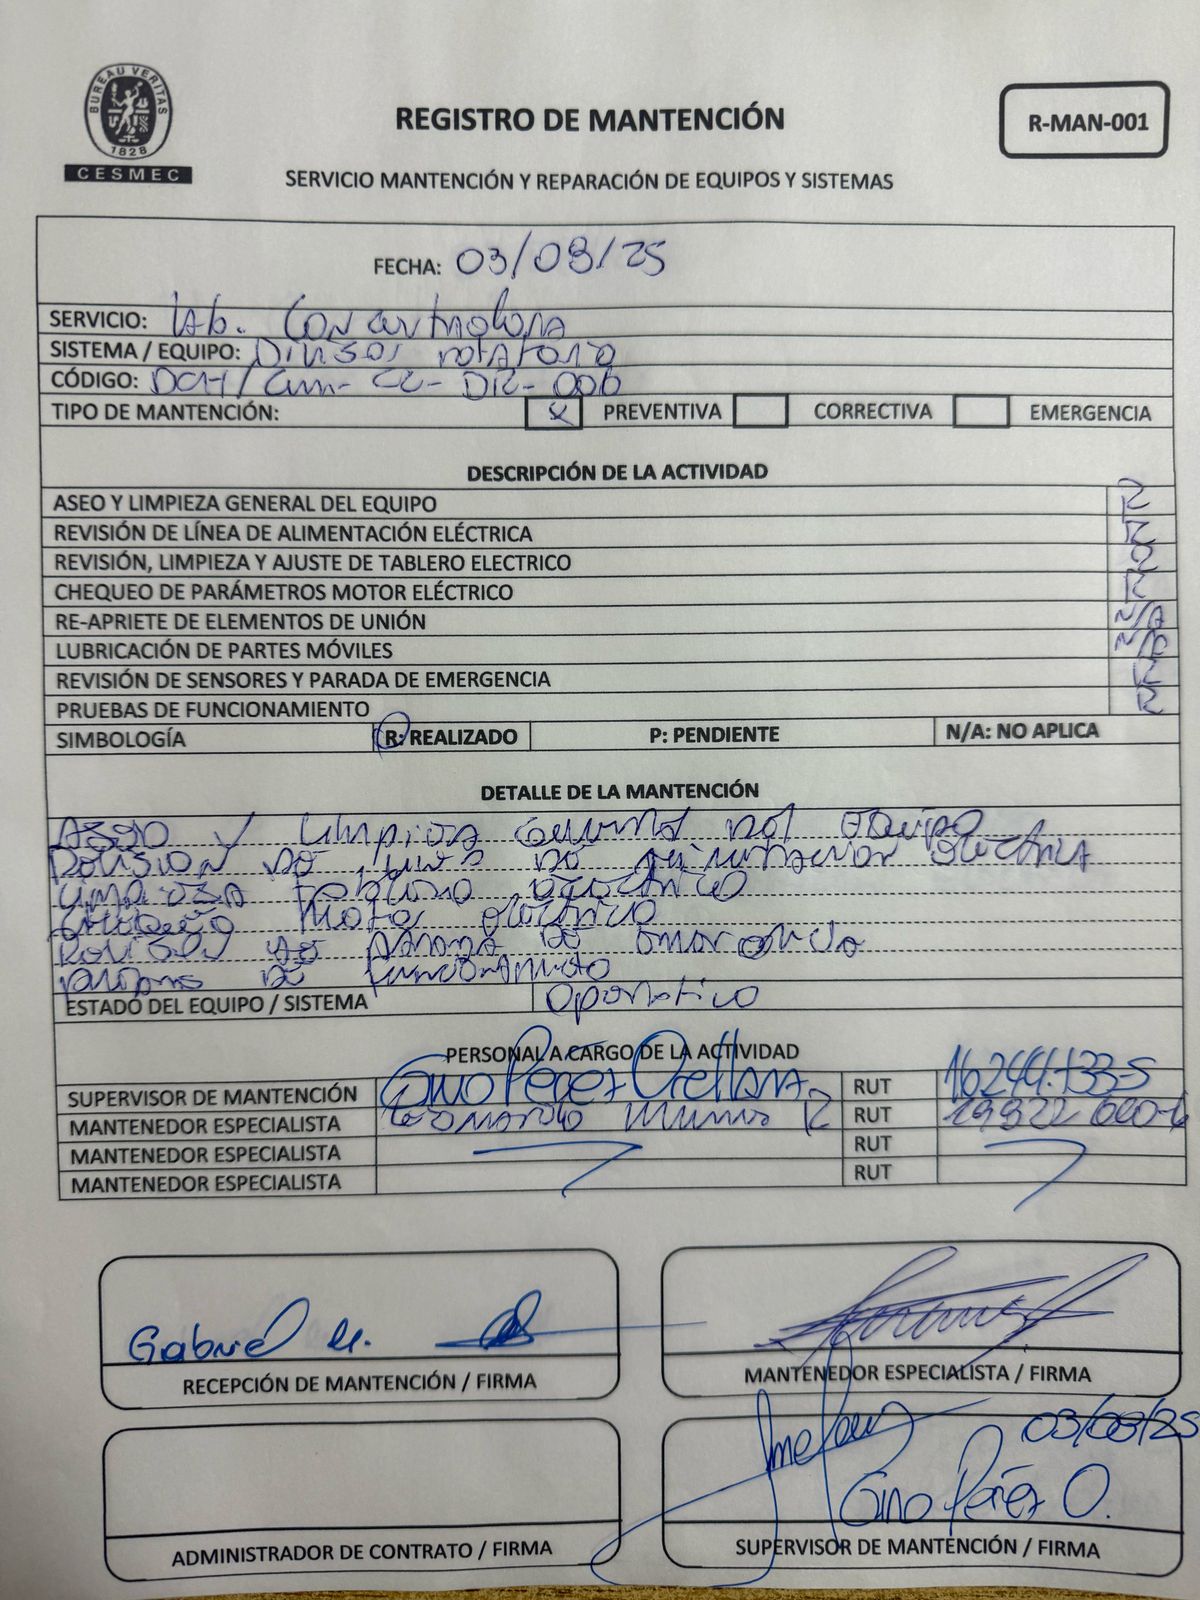 BUREAU VERITAS
1828
CESMEC
REGISTRO DE MANTENCIÓN
R-MAN-001
SERVICIO MANTENCIÓN Y REPARACIÓN DE EQUIPOS Y SISTEMAS
FECHA: 03/08/25
SERVICIO: Lab. Concentradora
SISTEMA / EQUIPO: Divisor rotatorio
CÓDIGO: DCH/
TIPO DE MANTENCIÓN: X PREVENTIVA CORRECTIVA EMERGENCIA
DESCRIPCIÓN DE LA ACTIVIDAD
ASEO Y LIMPIEZA GENERAL DEL EQUIPO R
REVISIÓN DE LÍNEA DE ALIMENTACIÓN ELÉCTRICA R
REVISIÓN, LIMPIEZA Y AJUSTE DE TABLERO ELECTRICO R
CHEQUEO DE PARÁMETROS MOTOR ELÉCTRICO R
RE-APRIETE DE ELEMENTOS DE UNIÓN N/A
LUBRICACIÓN DE PARTES MÓVILES N/A
REVISIÓN DE SENSORES Y PARADA DE EMERGENCIA R
PRUEBAS DE FUNCIONAMIENTO R
SIMBOLOGÍA R: REALIZADO P: PENDIENTE N/A: NO APLICA
DETALLE DE LA MANTENCIÓN
Aseo y limpieza general del equipo
Revision de linea de alimentacion electrica
limpieza tablero electrico
chequeo motor electrico
de parada de emergencia
de funcionamiento
ESTADO DEL EQUIPO / SISTEMA Operativo
PERSONAL A CARGO DE LA ACTIVIDAD
SUPERVISOR DE MANTENCIÓN Gino Pérez Orellana RUT 16244733-5
MANTENEDOR ESPECIALISTA Leonardo R RUT
MANTENEDOR ESPECIALISTA RUT
MANTENEDOR ESPECIALISTA RUT
Gabriel M.
RECEPCIÓN DE MANTENCIÓN / FIRMA
MANTENEDOR ESPECIALISTA / FIRMA
03/08/25
Gino Pérez O.
ADMINISTRADOR DE CONTRATO / FIRMA
SUPERVISOR DE MANTENCIÓN / FIRMA